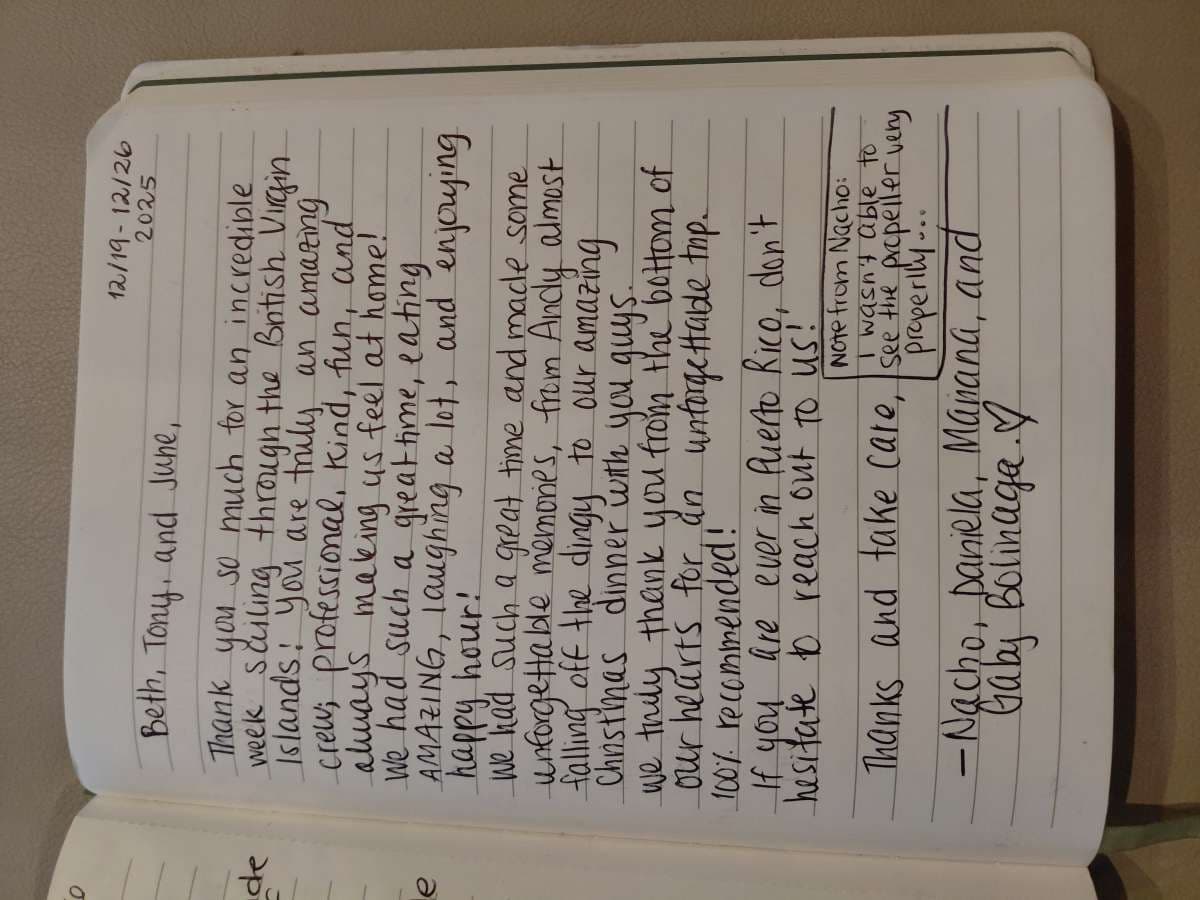 12/19-12/26
2025
Beth, Tony, and June,
Thank you so much for an incredible
week sailing through the British Virgin
Islands! You are truly an amazing
crew; professional, kind, fun, and
always making us feel at home!
We had such a great time, eating
AMAZING, laughing a lot, and enjoying
happy hour!
We had such a great time and made some
unforgettable memories, from Andy almost
falling off the dingy to our amazing
Christmas dinner with you guys.
We truly thank you from the bottom of
our hearts for an unforgettable trip.
100% recommended!
If you are ever in Puerto Rico, don't
hesitate to reach out to us!
Note from Nacho:
I wasn't able to
see the propeller very
properlly...
Thanks and take care,
- Nacho, Daniela, Mariana, and
Gaby Bolinaga. ♡
de
e